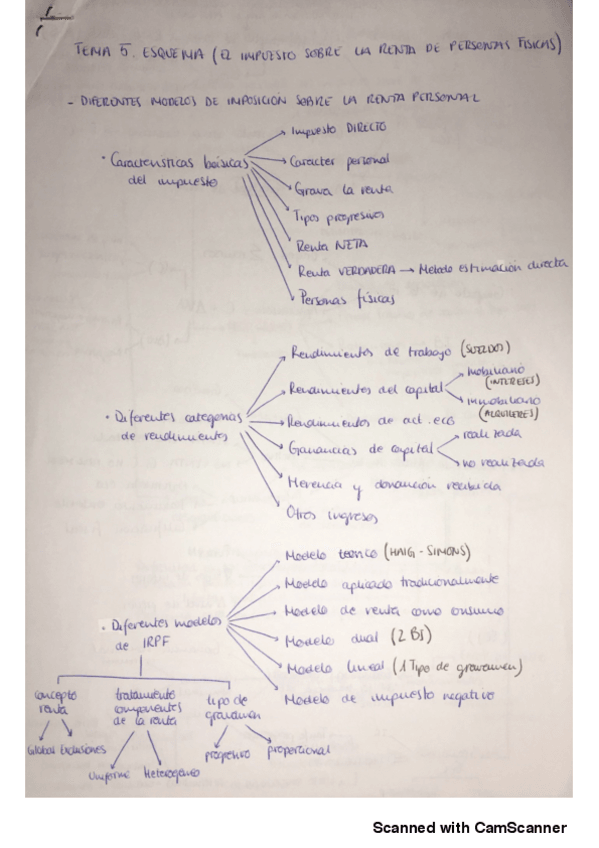 TEMA 5. ESQUEMA (EL IMPUESTO SOBRE LA RENTA DE PERSONAS FISICAS)
- DIFERENTES MODELOS DE IMPOSICIÓN SOBRE LA RENTA PERSONAL
Impuesto DIRECTO
· Características básicas
del impuesto
Caracter personal
Grava la renta
Tipos progresivos
Renta NETA
Renta VERDADERA → Metodo estimación directa
Personas físicas
Rendimientos de trabajo (SUELDOS)
· Diferentes categorias
de rendimientos
Rendimientos del capital
mobiliario
(INTERESES)
inmobiliario
(ALQUILERES)
Rendimientos de act. ecó
Ganancias de capital
realizada
no realizada
Herencia y donación recibida
Otros ingresos
· Diferentes modelos
de IRPF
Modelo teórico (HAIG - SIMONS)
Modelo aplicado tradicionalmente
Modelo de renta como consumo
Modelo dual (2 BI)
Modelo lineal (1 Tipo de gravamen)
Modelo de impuesto negativo
concepto
renta
tratamiento
componentes
de la renta
tipo de
gravamen
Global Exclusiones
Uniforme Heterogéneo
progresivo proporcional
Scanned with CamScanner